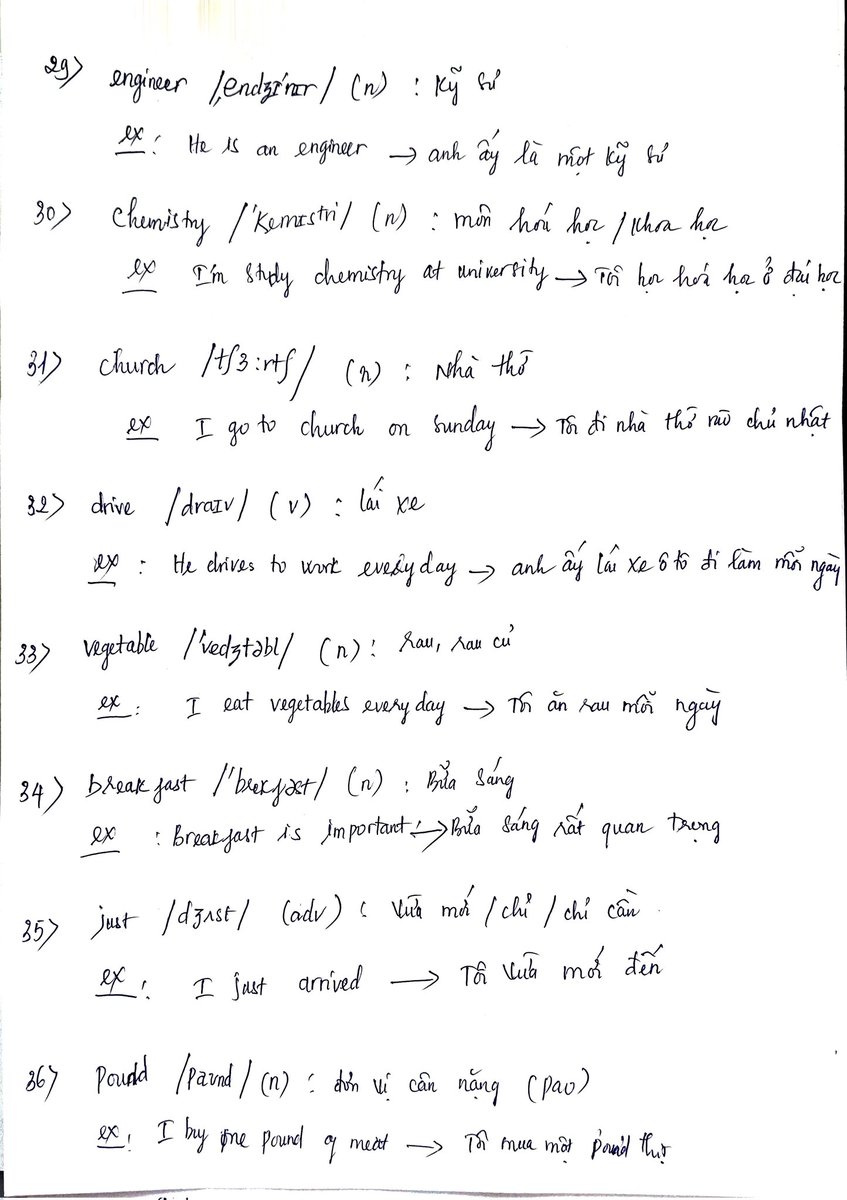 29) engineer /ˌendʒɪˈnɪr/ (n) : Kỹ sư
ex : He is an engineer → anh ấy là một kỹ sư
30) Chemistry /ˈkemɪstri/ (n) : môn hoá học / khoa học
ex I'm study chemistry at university → Tôi học hoá học ở đại học
31) church /tʃɜːrtʃ/ (n) : Nhà thờ
ex I go to church on sunday → Tôi đi nhà thờ vào chủ nhật
32) drive /draɪv/ (v) : lái xe
ex : He drives to work everyday → anh ấy lái xe ô tô đi làm mỗi ngày
33) vegetable /ˈvedʒtəbl/ (n) : rau, rau củ
ex : I eat vegetables every day → Tôi ăn rau mỗi ngày
34) breakfast /ˈbrekfəst/ (n) : Bữa sáng
ex : Breakfast is important : → Bữa sáng rất quan trọng
35) just /dʒʌst/ (adv) : vừa mới / chỉ / chỉ cần
ex : I just arrived → Tôi vừa mới đến
36) Pound /paʊnd/ (n) : đơn vị cân nặng (pao)
ex : I by one pound of meat → Tôi mua một pound thịt